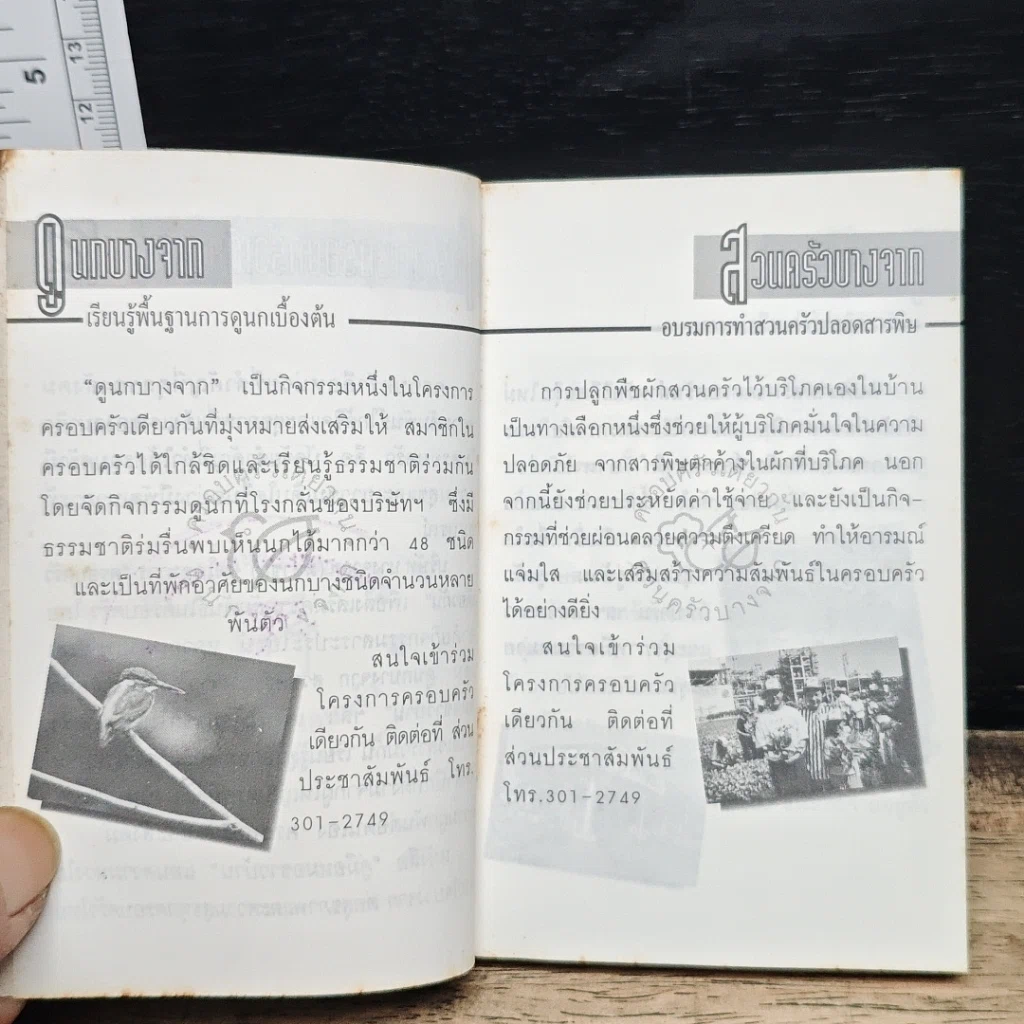 5
13
12
ดูนกบางจาก
เรียนรู้พื้นฐานการดูนกเบื้องต้น
“ดูนกบางจาก” เป็นกิจกรรมหนึ่งในโครงการ
ครอบครัวเดียวกันที่มุ่งหมายส่งเสริมให้ สมาชิกใน
ครอบครัวได้ใกล้ชิดและเรียนรู้ธรรมชาติร่วมกัน
โดยจัดกิจกรรมดูนกที่โรงกลั่นของบริษัทฯ ซึ่งมี
ธรรมชาติร่มรื่นพบเห็นนกได้มากกว่า 48 ชนิด
และเป็นที่พักอาศัยของนกบางชนิดจำนวนหลาย
พันตัว
สนใจเข้าร่วม
โครงการครอบครัว
เดียวกัน ติดต่อที่ ส่วน
ประชาสัมพันธ์ โทร.
301-2749
สวนครัวบางจาก
อบรมการทำสวนครัวปลอดสารพิษ
การปลูกพืชผักสวนครัวไว้บริโภคเองในบ้าน
เป็นทางเลือกหนึ่งซึ่งช่วยให้ผู้บริโภคมั่นใจในความ
ปลอดภัย จากสารพิษตกค้างในผักที่บริโภค นอก
จากนี้ยังช่วยประหยัดค่าใช้จ่าย และยังเป็นกิจ-
กรรมที่ช่วยผ่อนคลายความตึงเครียด ทำให้อารมณ์
แจ่มใส และเสริมสร้างความสัมพันธ์ในครอบครัว
ได้อย่างดียิ่ง
สนใจเข้าร่วม
โครงการครอบครัว
เดียวกัน ติดต่อที่
ส่วนประชาสัมพันธ์
โทร.301-2749
สวนครัวบางจาก